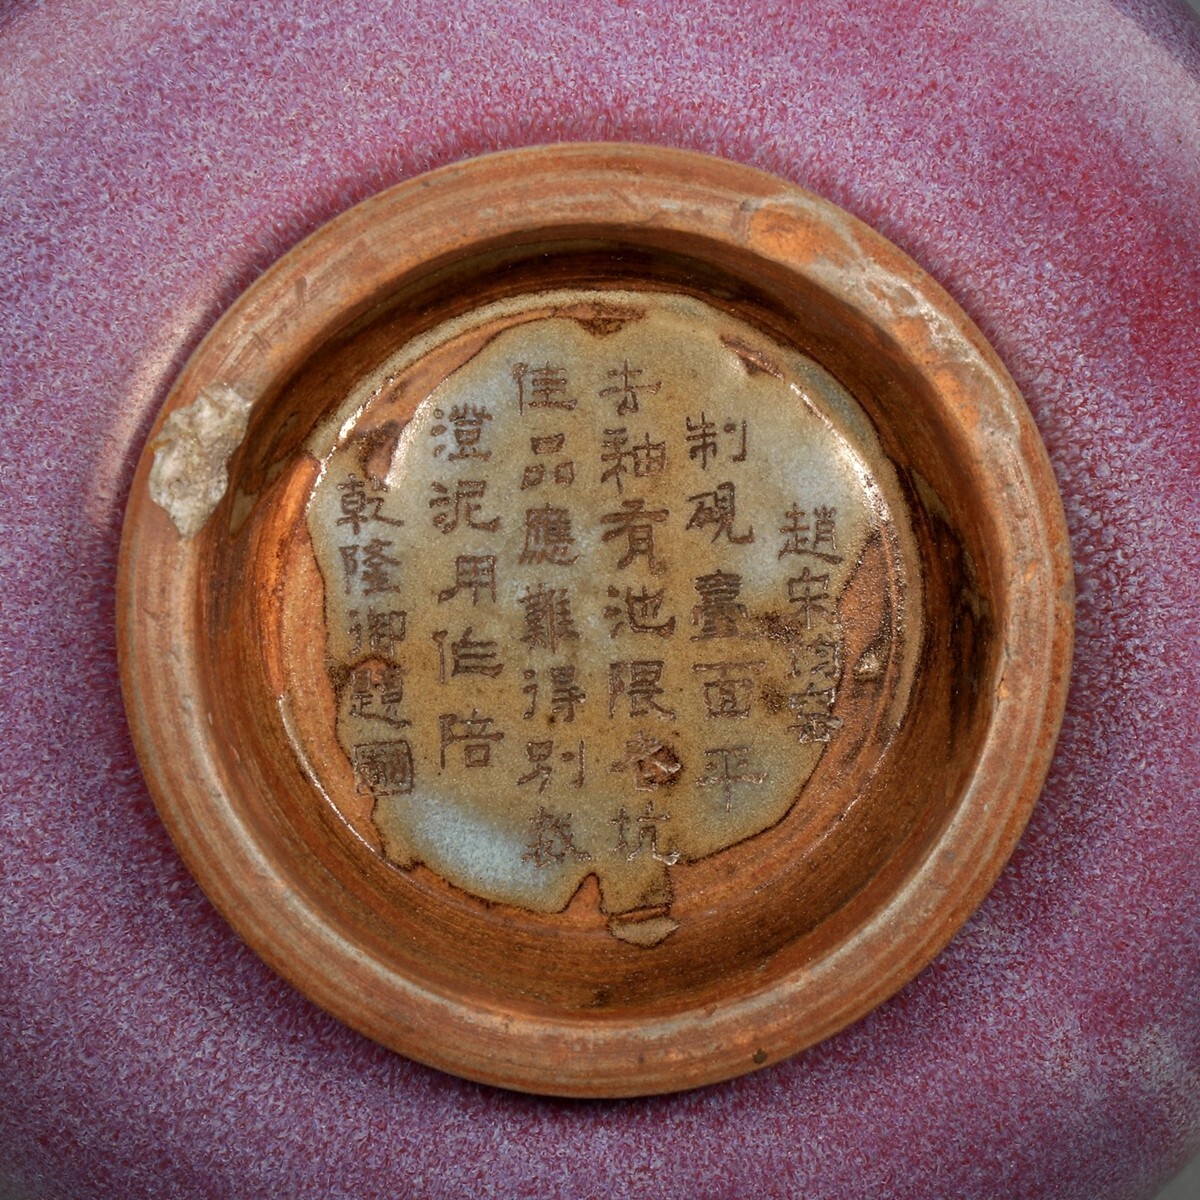 趙宋窯
制硯臺面平
去釉有池隈老坑
佳品應難得別
澄泥用作陪
乾隆御題